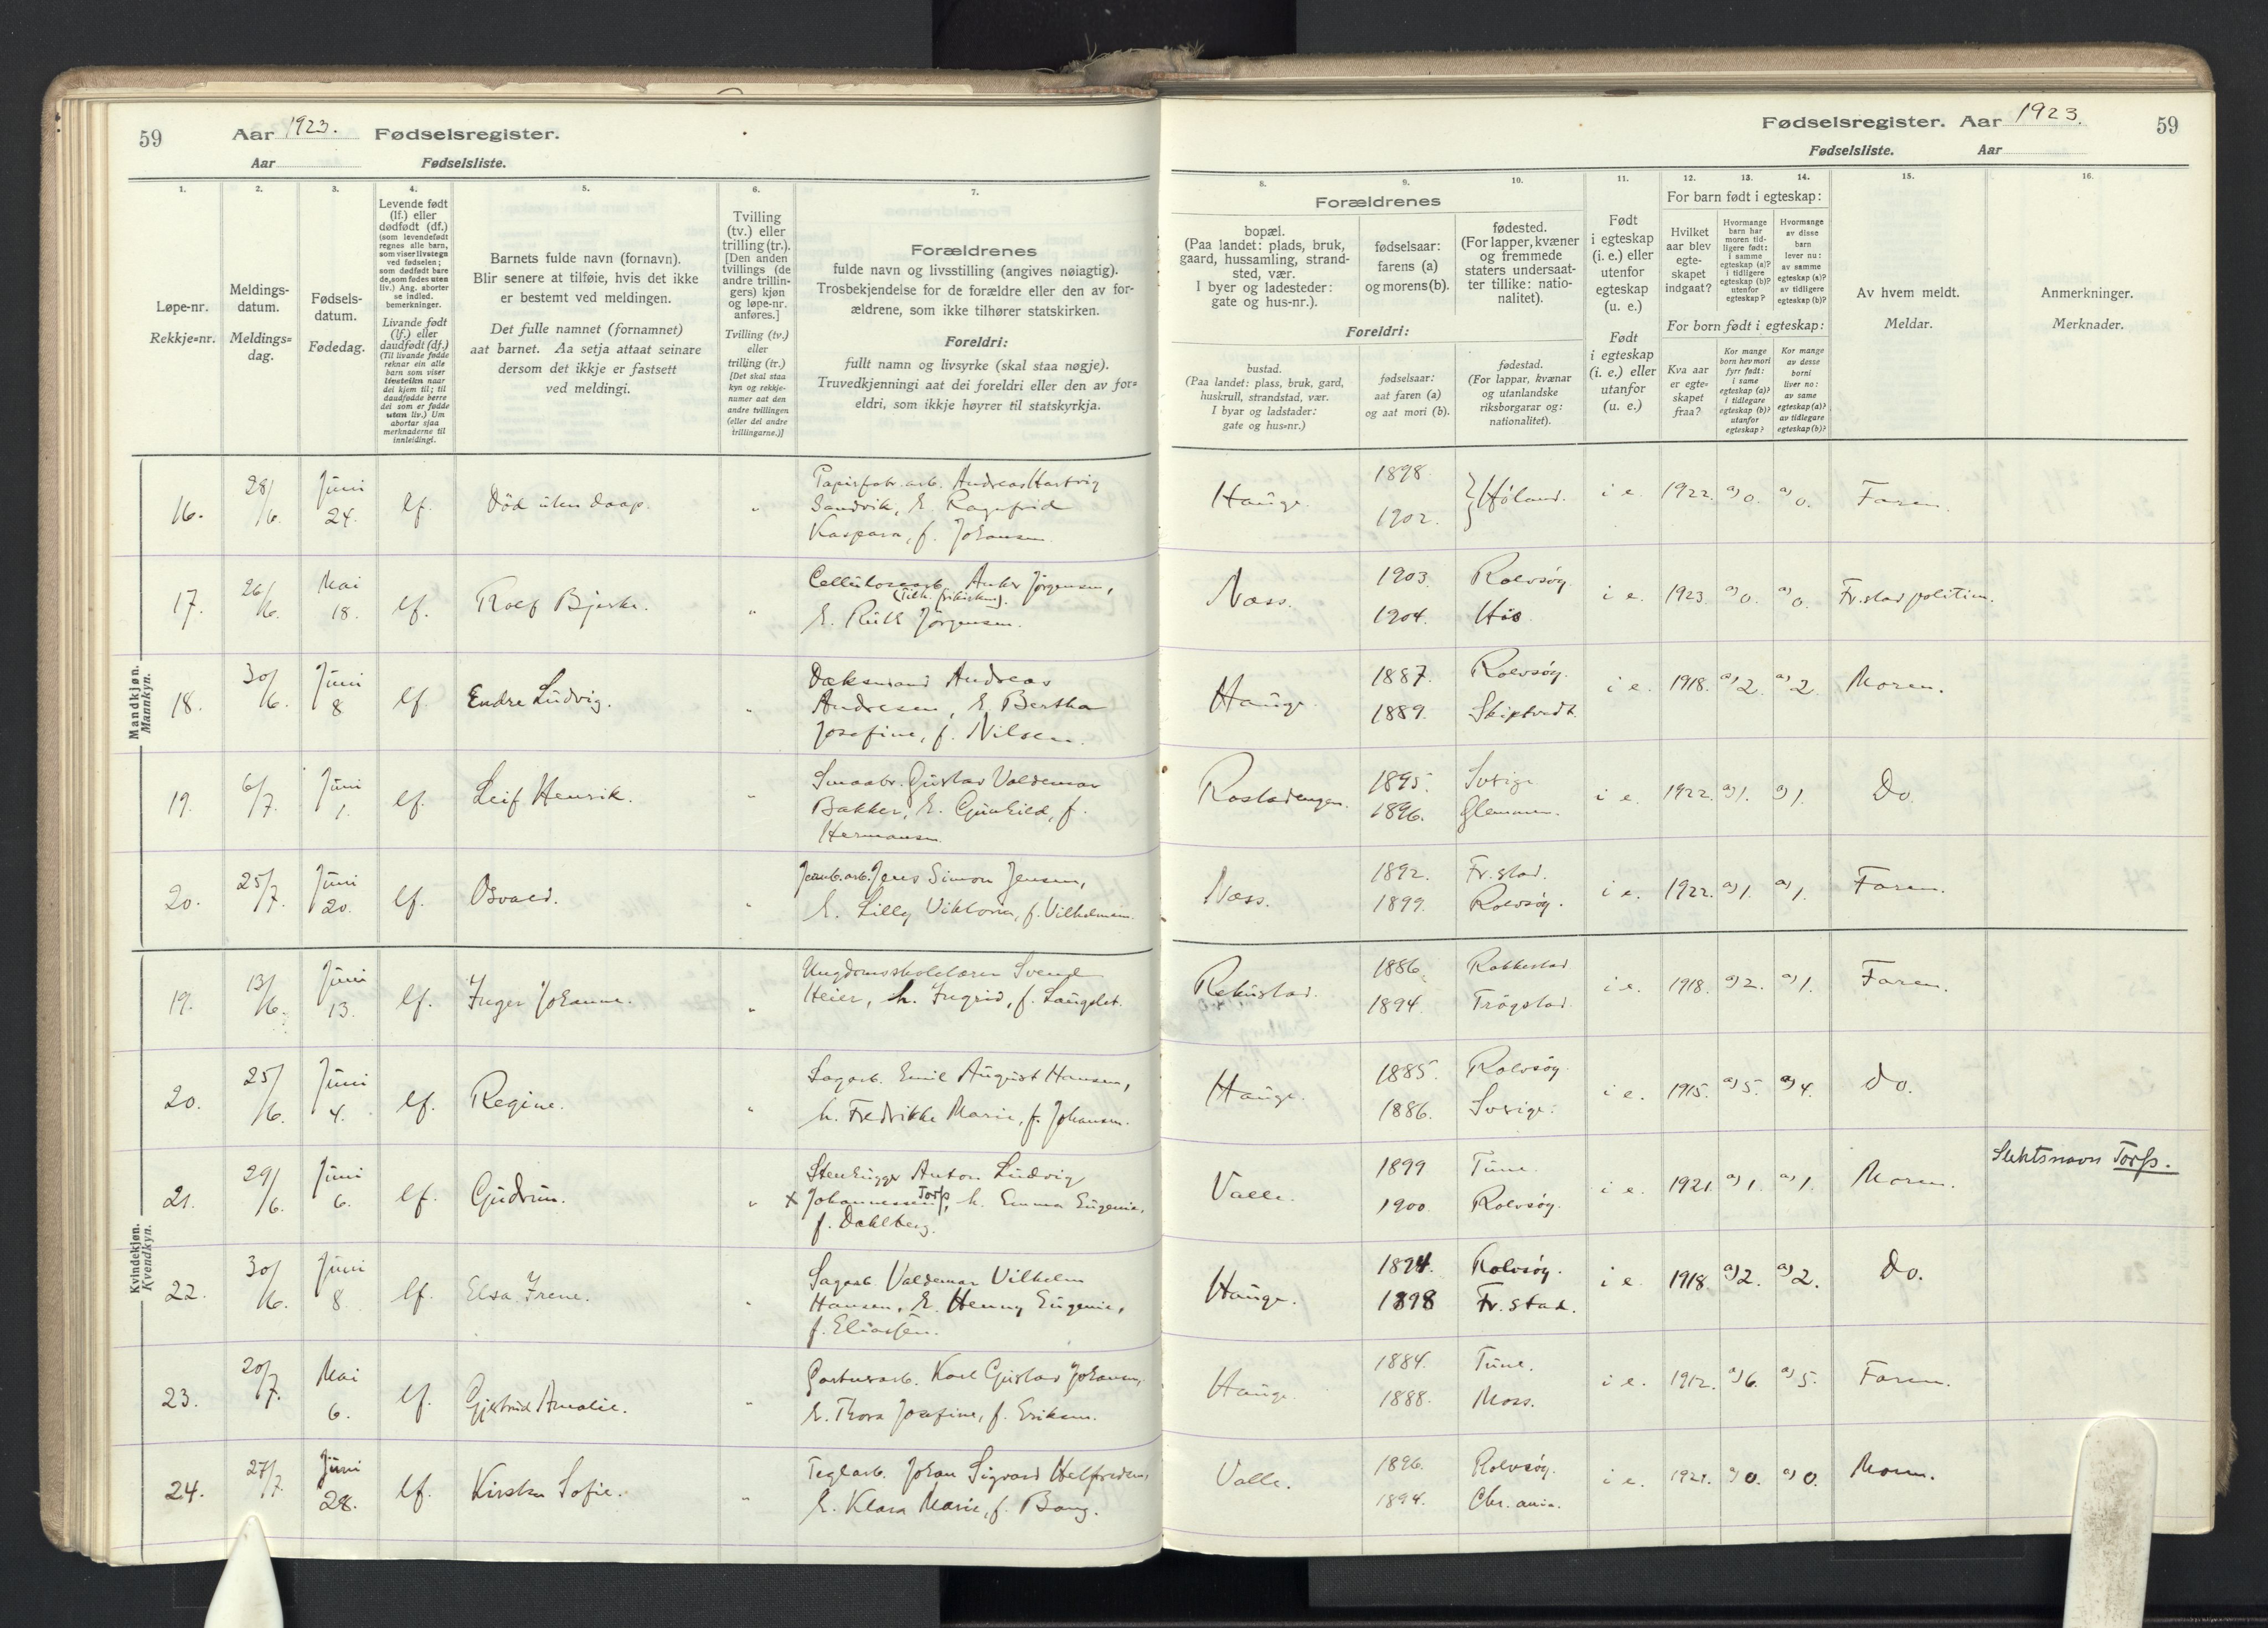 59 Aar 1923. Fødselsregister.
Aar Fødselsliste.
1. 2. 3. 4. 5. 6. 7.
Løpe-nr.
Rekkje=nr.
Meldings-
datum.
Meldings=
dag.
Fødsels-
datum.
Fødedag.
Levende født
(lf.) eller
dødfødt (df.)
(som levendefødt
regnes alle barn,
som viser livstegn
ved fødselen;
som dødfødt bare
de, som fødes uten
liv.) Ang. aborter
se indled.
bemerkninger.
Livande født
(lf.) eller
daudfødt (df.)
(Til livande fødde
reknar ein alle
barn som viser
livsteikn naar
dei kjem til; til
daudfødde berre
dei som er fødde
utan liv.) Um
abortar sjaa
merknaderne til
innleidingi.
Barnets fulde navn (fornavn).
Blir senere at tilføie, hvis det ikke
er bestemt ved meldingen.
Det fulle namnet (fornamnet)
aat barnet. Aa setja attaat seinare
dersom det ikkje er fastsett
ved meldingi.
Tvilling
(tv.) eller
trilling (tr.).
[Den anden
tvillings (de
andre trillin-
gers) kjøn
og løpe-nr.
anføres.]
Tvilling (tv.)
eller
trilling (tr.)
[Det skal staa
kyn og rekkje-
numer aat den
andre tvillingen
(eller dei andre
trillingarne.)]
Forældrenes
fulde navn og livsstilling (angives nøiagtig).
Trosbekjendelse for de forældre eller den av for-
ældrene, som ikke tilhører statskirken.
Foreldri:
fullt namn og livsyrke (skal staa nøgje).
Truvedkjenningi aat dei foreldri eller den av for=
eldri, som ikkje høyrer til statskyrkja.
Mandkjøn.
Mannkyn.
16. 28/6. Juni 24. lf. Død uten daap. " Papirfabr. arb. Andreas Hartvig
Sandvik, h. Ragnfrid
Kaspara, f. Johansen
17. 26/6. Mai 18. lf. Rolf Bjerke. " Cellulosearb. Anker Jørgensen,
(Tilh. frikirken).
h. Ruth Jørgensen.
18. 30/6. Juni 8 lf Endre Ludvig. " Dæksmand Andreas
Andresen, h. Bertha
Josefine, f. Nilsen.
19. 6/7. Juni 1. lf. Leif Henrik. " Smaabr. Gustav Valdemar
Bakker, h. Gunhild, f.
Hermansen
20. 25/7. Juni 20. lf. Osvald. " Jernb. arb. Jens Simon Jensen,
h. Lilly Viktoria, f. Vilhelmsen.
Kvindekjøn.
Kvendkyn.
19. 13/6. Juni 13. lf. Inger Johanne. " Ungdomsskolelærer Svend
Heier, h. Ingrid, f. Langslet.
20. 25/6. Juni 4. lf. Regine. " Sagarb. Emil August Hansen,
h. Fredrikke Marie, f. Johansen.
21. 29/6. Juni 6. lf. Gudrun. " Stenhugger Anton Ludvig
x Johannessen Torp, h. Emma Eugenie,
f. Dahlberg.
22. 30/6. Juni 8 lf. Elsa Irene. " Sagarb. Valdemar Vilhelm
Hansen, h. Henny Eugenie,
f. Eliassen.
23. 20/7. Mai 6. lf. Gjertrud Amalie. " Karl Gustav Johansen,
h. Thora Josefine, f. Eriksen.
24. 27/7. Juni 28. lf. Kirsten Sofie. " Teglarb. Johan Sigvard Helfredsen,
h. Klara Marie, f. Bang.
Fødselsregister. Aar 1923. 59
Fødselsliste. Aar
8. 9. 10. 11. 12. 13. 14. 15. 16.
Forældrenes
bopæl.
(Paa landet: plads, bruk,
gaard, hussamling, strand-
sted, vær.
I byer og ladesteder:
gate og hus-nr.).
fødselsaar:
farens (a)
og morens (b).
fødested.
(For lapper, kvæner
og fremmede
staters undersaat-
ter tillike: natio-
nalitet).
Foreldri:
bustad.
(Paa landet: plass, bruk, gard,
huskrull, strandstad, vær.
I byar og ladstader:
gate og hus=nr.)
fødselsaar:
aat faren (a)
og aat mori (b).
fødestad.
(For lappar, kvænar
og utanlandske
riksborgarar og:
nationalitet).
Født
i egteskap
(i. e.) eller
utenfor
egteskap
(u. e.)
Født
i egteskap
(i. e.) eller
utanfor
(u. e.)
For barn født i egteskap:
Hvilket
aar blev
egte-
skapet
indgaat?
Hvormange
barn har
moren tid-
ligere født:
i samme
egteskap (a)?
i tidligere
egteskap (b)?
utenfor
egteskap?
Hvormange
av disse
barn
lever nu:
av samme
egteskap (a)?
av tidligere
egteskap (b)?
For born født i egteskap:
Kva aar
er egte-
skapet
fraa?
Kor mange
born hev mori
fyrr født:
i same
egteskap (a)?
i tidlegare
egteskap (b)?
utanfor
egteskap?
Kor mange
av desse
borni
liver no:
av same
egteskap (a)?
av tidlegare
egteskap (b)?
Av hvem meldt.
Meldar.
Anmerkninger.
Merknader.
Hauge. 1898. 1902. } Høland. i e. 1922. a) 0. a) 0. Faren.
Næss. 1903. Rolvsøy 1904. Hås. i e. 1923. a) 0. a) 0. Fr.stad politim.
Hauge. 1887. Rolvsøy. 1889. Skiptvedt. i e. 1918. a) 2. a) 2. Moren.
Rostadengen. 1895. Sverige 1896. Glemmen. i e. 1922. a) 1. a) 1. Do.
Næss. 1892. Fr.stad. 1899. Rolvsøy. i e. 1922. a) 1. a) 1. Faren.
Rekustad. 1886. Rakkestad 1894. Trøgstad. i e. 1918. a) 2. a) 1. Faren.
Hauge. 1885. Rolvsøy. 1886. Sverige. i e. 1915. a) 5. a) 4. do.
Valle. 1899 Tune. 1900. Rolvsøy. i e. 1921. a) 1. a) 1. Moren. Slektsnavn Torp.
Hauge. 1894. Rolvsøy. 1898 Fr.stad. i e. 1918. a) 2. a) 2. Do.
Hauge. 1884. Tune. 1888. Moss. i e. 1912. a) 6. a) 5. Faren.
Valle. 1896. Rolvsøy. 1894. Chr.ania. i e. 1921. a) 0. a) 0. Moren.